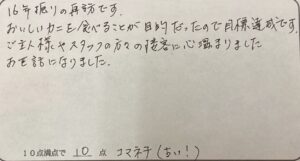 16年振りの再訪です。
おいしいカニを食べることが目的だったので目標達成です。
ご主人様やスタッフの方々の接客に心温まりました
お世話になりました。
10点満点で 10 点 コマネチ(古い!)